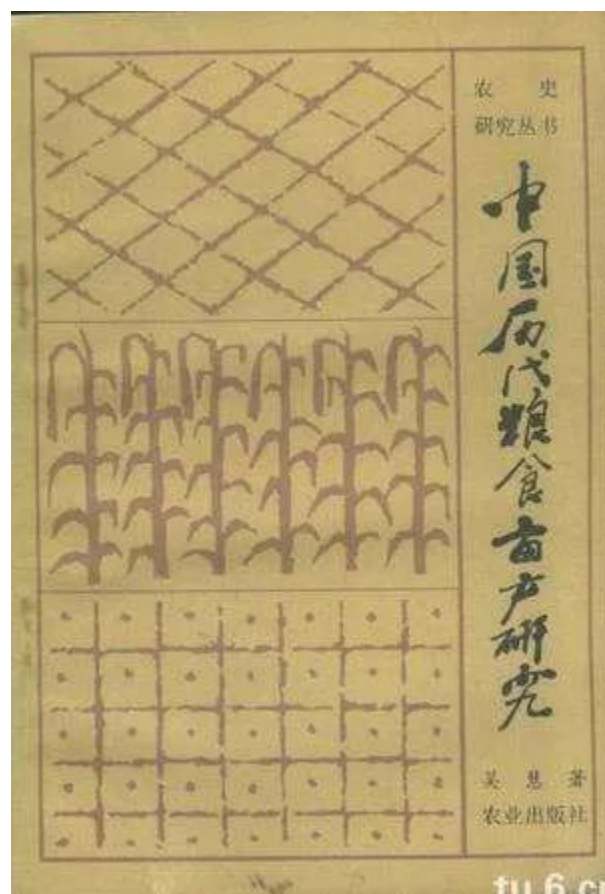 农史
研究丛书
中国历代粮食亩产研究
吴慧著
农业出版社